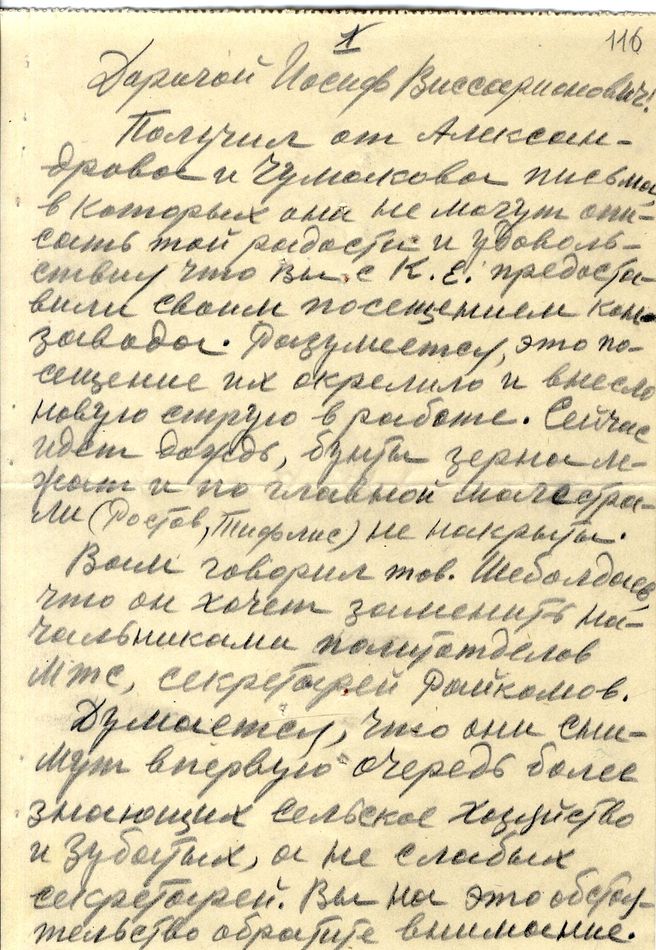 1
116
Дорогой Иосиф Виссарионович!
Получил от Алексан-
дрова и Чумакова письма,
в которых они не могут опи-
сать той радости и удоволь-
ствия что Вы с К.Е. предоста-
вили своим посещением кон-
завода. Разумеется, это по-
сещение их окрылило и внесло
новую струю в работе. Сейчас
идет дождь, бунты зерна ле-
жат и по главной магистра-
ли (Ростов, Тифлис) не накрыты.
Вам говорил тов. Шеболдаев,
что он хочет заменить на-
чальниками политотделов
МТС, секретарей Райкомов.
Думается, что они сни-
мут впервую очередь более
знающих сельское хозяйство
и зубатых, а не слабых
секретарей. Вы на это обстоя-
тельство обратите внимание.